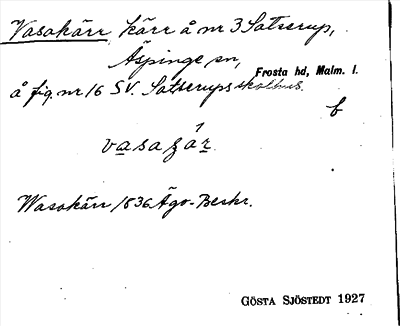 Vasakärr, kärr å nr 3 Satserup,
Äspinge sn,
Frosta hd, Malm. l.
å fig. nr 16 SV. Satserups skolhus.
f
Wasakärr 1836 Ägo-Beskr.
GÖSTA SJÖSTEDT 1927